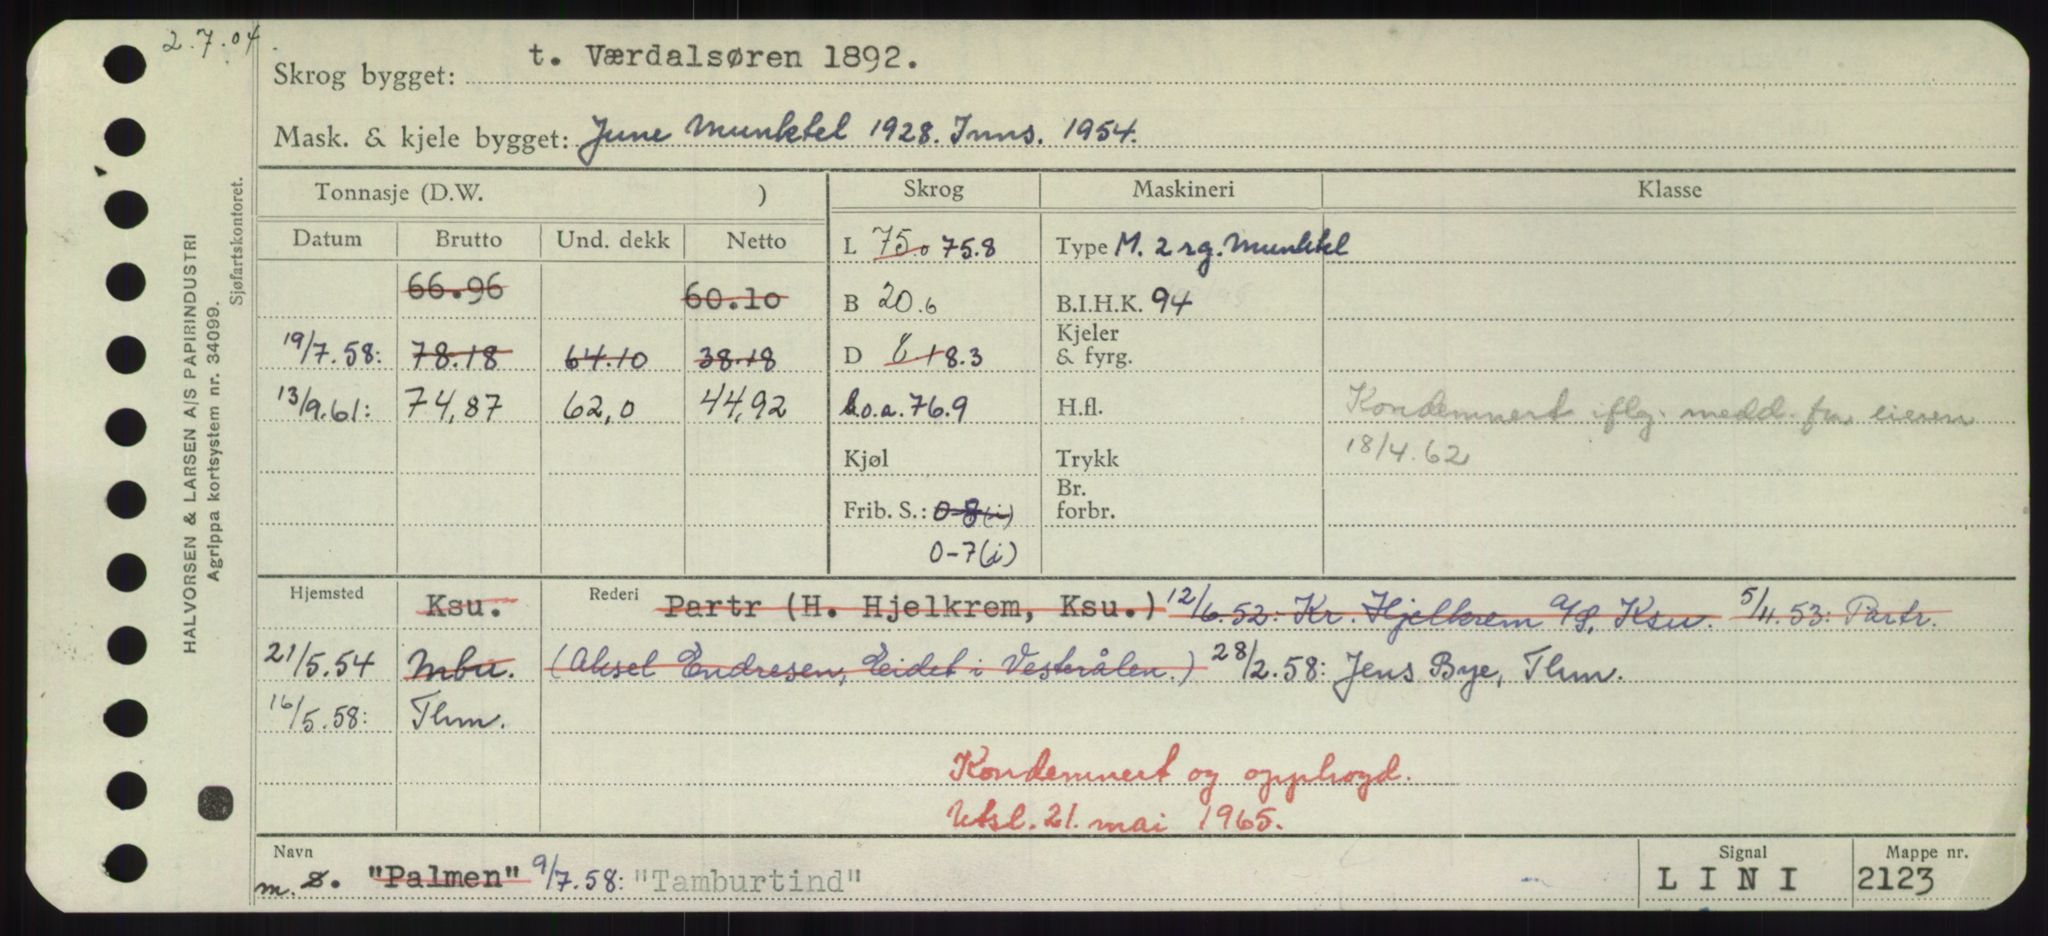 2.7.04.
Skrog bygget: t. Værdalsøren 1892.
Mask. & kjele bygget: June Munktel 1928. Inns. 1954.
HALVORSEN & LARSEN A/S PAPIRINDUSTRI
Agrippa kortsystem nr. 34099.
Sjøfartskontoret.
Tonnasje (D.W. ) Skrog Maskineri Klasse
Datum Brutto Und. dekk Netto
L 75.0 75.8 Type M. 2 rg. Munktel
66.96 60.10 B 20.6 B.I.H.K. 94
19/7.58: 78.18 64.10 38.18 D 8.1 8.3 Kjeler & fyrg.
13/9.61: 74,87 62,0 44,92 l.o.a. 76.9 H.fl. Kondemnert iflg. medd. fra eieren
Kjøl Trykk 18/4.62
Frib. S.: 0-8(i) Br. forbr.
0-7(i)
Hjemsted Ksu. Rederi Partr (H. Hjelkrem, Ksu.) 12/6.52: Kr. Hjelkrem A/S, Ksu. 5/11.53: Partr.
21/5.54 Mbu. (Aksel Endresen, Eidet i Vesterålen.) 28/2.58: Jens Bye, Thm.
16/5.58: Thm.
Kondemnert og opphogd.
Utsl. 21. mai 1965.
Navn Signal Mappe nr.
m. s. "Palmen" 9/7.58: "Tamburtind" L I N I 2123